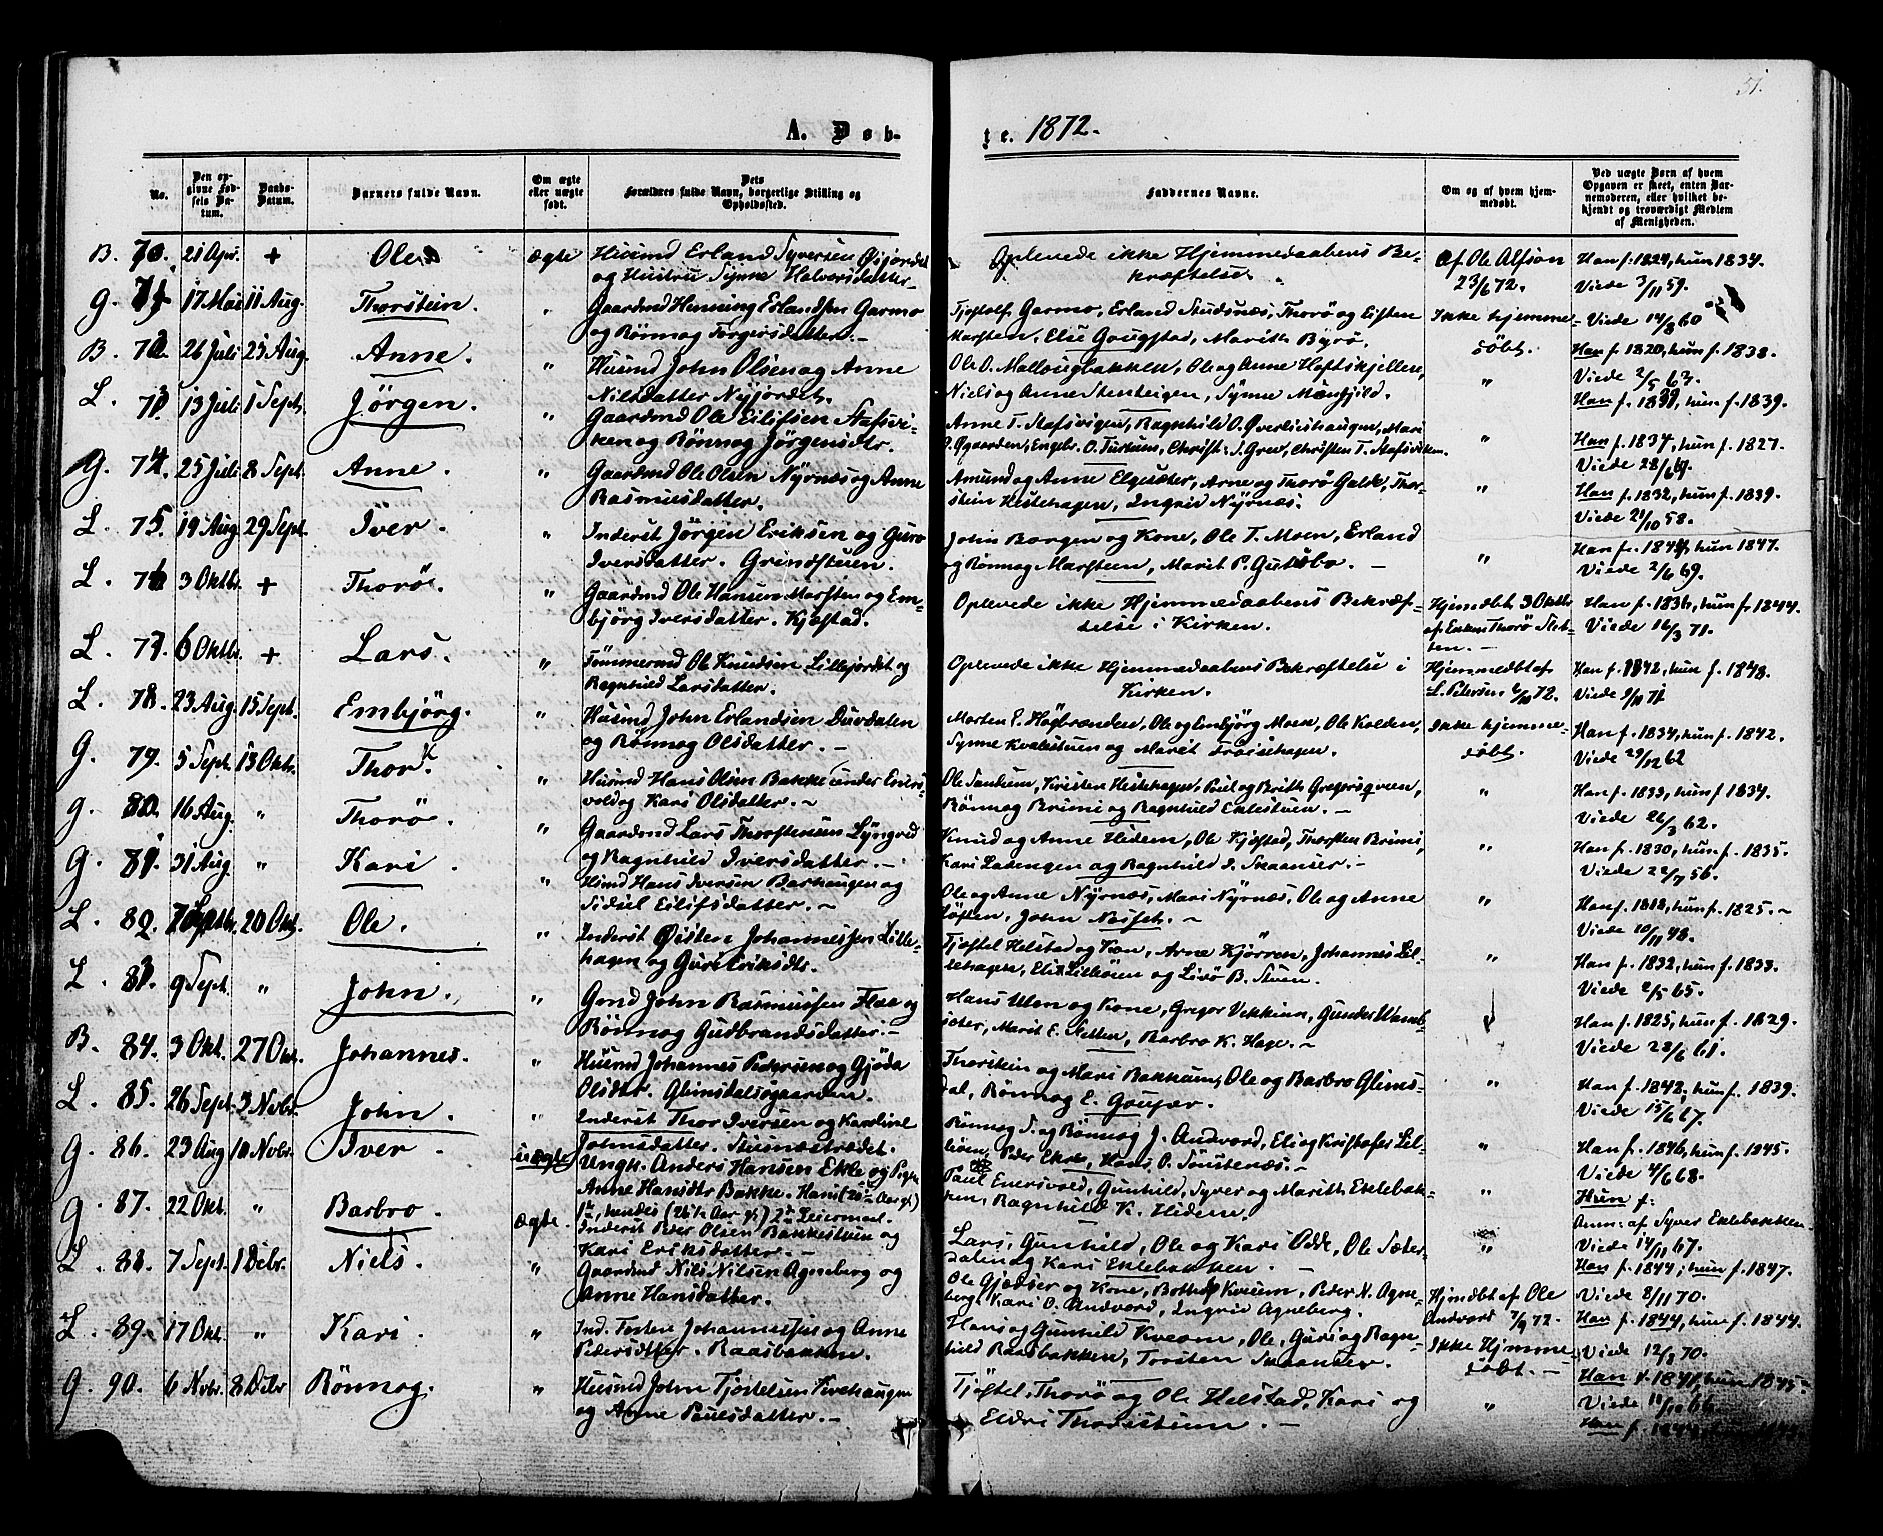 51.
A. Døb-
te. 1872.
No.
Den opgivne Fødsels Datum.
Daabs-Datum.
Barnets fulde Navn.
Om ægte eller uægte født.
Dets Forældres fulde Navn, borgerlige Stilling og Opholdssted.
Faddernes Navne.
Om og af hvem hjemmedøbt.
Ved uægte Børn af hvem Opgaven er skeet, enten Barnemoderen, eller hvilket bekjendt og troværdigt Medlem af Menigheden.
B. 70. 21 Apr. + Ole ægte Husmd Erland Syversen Øyjordet
og Hustru Synne Halvorsdatter.
Oplevede ikke Hjemmedaabens Be-
kræftelse.
Af Ole Alfson
23/6 72.
Han f. 1824, hun 1834.
Viede 3/11 59.
G. 71 17 Mai 11 Aug. Thorstein. " Gaardmd Henning Erlandsen Garmo
og Rønnog Torgersdatter.-
Tjøstolf Garmo, Erland Studsnæs, Thorø og Eisten
Marsteen, Else Gougstad, Marith Byrø.
Ikke hjemme-
døbt.
Viede 14/8 60
Han f. 1820, hun f. 1838.
B. 72. 26 Juli 25 Aug. Anne. " Husmd John Olsen og Anne
Nilsdatter Nyjordet.
Ole O. Mallougbakken, Ole og Anne Heftskjellen,
Niels og Anne Stenteigen, Synne Mængjild.
"
Viede 2/5 63.
Han f. 1839, hun f. 1839.
L. 73. 13 Juli 1 Sept. Jörgen. " Gaardmd Ole Eilifsen Stafsvi-
ken og Rönnog Jörgensdtr.
Anne T. Stafsvigen, Ragnhild O. Øverlieshaugen, Mari
O. Øgaarden, Engebr. O. Turtums, Christ: J. Grev, Christen T. Stafsviken.
"
Han f. 1834, hun f. 1827.
Viede 28/6 69.
G. 74. 25 Juli 8 Sept. Anne. " Gaardmd Ole Olsen Nyrnæs og Anne
Rasmusdatter.
Amund og Anne Elgesæter, Arne og Thorø Galde, Thor-
stein Hestehagen, Ingrid Nyrnæs.
"
Han f. 1832, hun f. 1839.
Viede 21/10 58.
L. 75. 19 Aug. 29 Sept. Iver. " Inderst Jörgen Eriksen og Guro
Iversdatter. Grindstuen.
John Borgen og Kone, Ole T. Moen, Erland
og Rönnog Marsteen, Marit P. Gutubø. -
"
Han f. 1844, hun 1847.
Viede 2/6 69.
L. 76 3 Oktbr. + Thorø. " Gaardmd Ole Hansen Marsten og Em-
björg Iversdatter. Kjæstad.
Oplevede ikke Hjemmedaabens Bekræf-
telse i Kirken.
Hjemdbt 3 Oktbr
af Enken Thorø Slet-
ten. -
Han f. 1836, hun f. 1844.
Viede 16/3 71.
L. 77. 6 Oktbr. + Lars. " Tömmermd Ole Knudsen Lillejordet og
Ragnhild Larsdatter.
Oplevede ikke Hjemmedaabens Bekræftelse i
Kirken.
Hjemmedbt af
L. Petersen 6/10 72.
Han f. 1842, hun f. 1848.
Viede 9/11 71
L. 78. 23 Aug. 15 Sept. Embjörg. " Husmd John Erlandsen Duvdalen
og Rönnog Olsdatter. -
Morten E. Høgbrænden, Ole og Embjörg Moen, Ole Kolden,
Synne Kvalestuen og Marit Froisehagen.
Ikke hjemme-
døbt.
Han f. 1834, hun f. 1842.
Viede 29/12 62
G. 79. 5 Sept. 13 Oktr. Thor. " Husmd Hans Olsen Bakke under Eners-
vold og Kari Olsdatter. ~
Ole Sandum, Kristen Hestehagen, Poul og Brith Gregersqveen,
Rönnog Brimi og Ragnhild Eklestuen. -
"
Han f. 1833, hun f. 1834.
Viede 26/3 62.
G. 80. 16 Aug. " Thorø. " Gaardmd Lars Thorstensen Lyngved
og Ragnhild Iversdatter. -
Knud og Anne Hidem, Ole Kjøstad, Thorsten Brimi,
Kari Ladengen og Ragnhild J. Skaanser. -
"
Han f. 1830, hun f. 1835.
Viede 22/7 56.
G. 81. 31 Aug. " Kari. " Hsmd Hans Iversen Barhaugen og
Sidsel Eilifsdatter. ~
Ole og Anne Nyrnæs, Mari Nyrnæs, Ole og Anne
Løften, John Næset. ~
"
Han f. 1818, hun f. 1825. ~
Viede 10/11 48.
L. 82. 7 Septbr. 20 Okt. Ole. " Inderst Östen Johannessen Lille-
hagen og Guri Eriksdtr.
Tjøstel Helstad og Kon, Arne Kjörren, Johannes Lil-
lehagen, Eli Lilleöien og Livø B. Stuen.
"
Han f. 1832, hun f. 1833.
Viede 2/5 65.
L. 83. 9 Sept. " John. " Gmd John Rasmussen Flaa og
Rönnog Gudbrandsdatter. -
Hans Ulen og Kone, Gregor Vekkum, Gunder Uramb-
sæter, Marit E. Sletten, Barbro K. Hage. ~
"
Han f. 1825, hun f. 1829.
Viede 23/6 61.
B. 84. 3 Okt. 27 Okt. Johannes. " Husmd Johannes Pedersen og Gjøda
Olsdtr. Glimsdalsøgaarden.
Thorstein og Mari Bakkum, Ole og Barbro Glims-
dal, Rönnog E. Goupær.
"
Han f. 1842, hun f. 1839.
Viede 15/6 67.
L. 85. 26 Sept. 3 Novbr. John. " Inderst Thor Iversen og Karoline
Johnsdatter. Stumæstrædet.
Rönnog S. og Rönnog J. Andvord, Eli og Kristofer Lil-
leöien, Peder Ekre, Hans P. Sønstenæs. -
"
Han f. 1846, hun f. 1845.
Viede 4/6 68.
G. 86. 23 Aug 10 Novbr. Iver. uægte Ungk. Anders Hansen Ekle og Pigen
Anne Hansdtr Bakke. Hans (20 Aar gl.)
1ste, hendes (26 1/2 Aar gl.) 2det Leiermaal.
Paul Enersvold, Gunhild, Syver og Marith Eklebak-
ken, Ragnhild K. Hidem.
"
Hun f.
Anm: af Syver Eklebakken.
G. 87. 22 Okt. " Barbro. ægte. Inderst Peder Olsen Bakkestuen og
Kari Eriksdatter. -
Lars, Gunhild, Ole og Kari Odde, Ole Sæter-
dalen og Kari Eklebakken.
"
Viede 14/11 67.
Han f. 1844, hun f. 1847.
L. 88. 7 Sept. 1 Debr. Niels. " Gaardmd Nils Nilsen Agneberg og
Anne Hansdatter.
Ole Gjødser og Kone, Botholf Kveum, Peder N. Agne-
berg, Kari O. Andvord, Ingrid Agneberg.
Hjmdbt af Ole
Andvord 7/9 72.
Viede 8/11 70.
Han f. 1844, hun f. 1844.
L. 89. 17 Okt. " Kari. " Ind. Tosten Johannessen og Anne
Pedersdtter. Raasbakken.
Hans og Gunhild Kveom, Ole, Guri og Ragn-
hild Raasbakken, Torsten Skaanser.
Ikke Hjemme
døbt. -
Viede 12/8 70.
Han f. 1841, hun 1845 -
G. 90. 6 Novbr. 8 Debr Rönnog. " Husmd John Tjostelsen Kirchaugen
og Anne Paulsdatter. -
Tjøstel, Thorø og Ole Helstad, Kari og
Eldri Thoristuen. -
"
Viede 11/10 66
Han f.